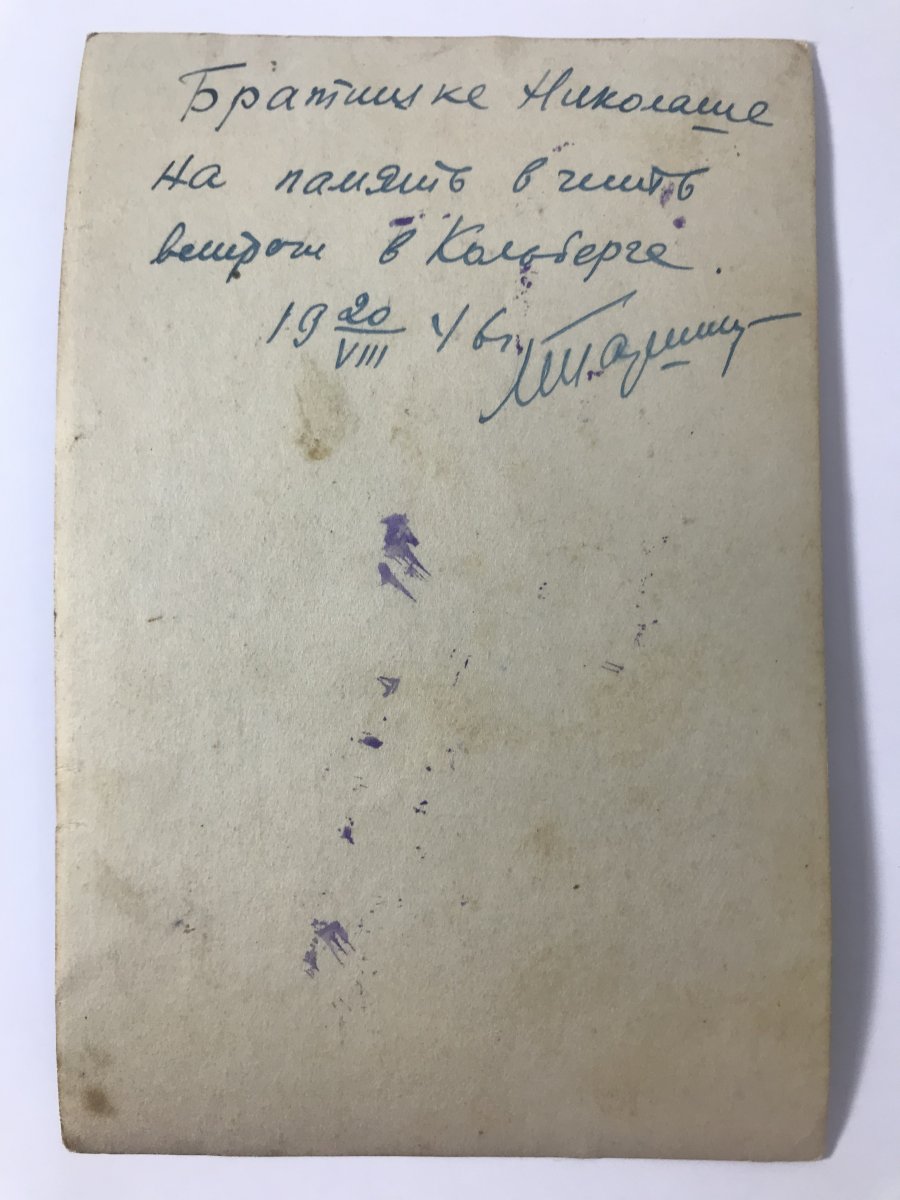 Братишке Николаше
на память в честь
встречи в Кольберге.
19 20/VIII 46г.